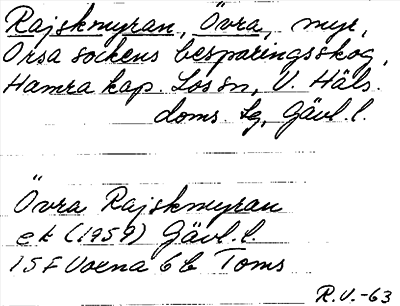 Rajskmyran, Övra, myr,
Orsa sockens besparingsskog,
Hamra kap. Los sn, V. Häls.
doms. Lg, Gävl. l.
Övra Rajskmyran
ek (1959) Gävl. l.
15F Voxna 6b Toms
R.V.-63